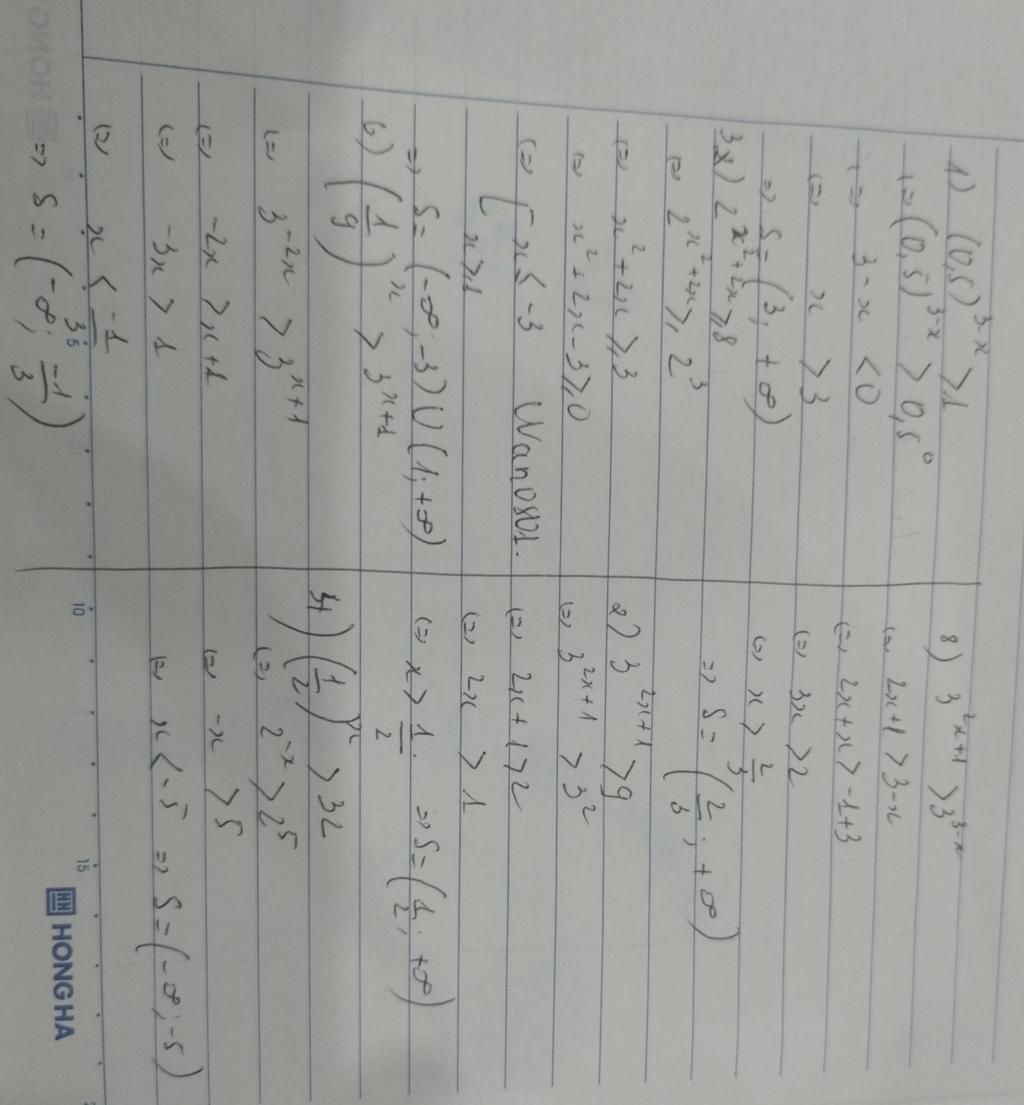 1) (0,5)^{3-x} > 1
(=) (0,5)^{3-x} > 0,5^0
(=) 3-x < 0
(=) x > 3
=> S = (3; +∞)
3) 2^{x^2+2x} ≥ 8
(=) 2^{x^2+2x} ≥ 2^3
(=) x^2+2x ≥ 3
(=) x^2+2x-3 ≥ 0
(=) [ x ≤ -3
x ≥ 1
Wan0801.
=> S = (-∞; -3) U (1; +∞)
6) (1/9)^x > 3^{x+1}
(=) 3^{-2x} > 3^{x+1}
(=) -2x > x+1
(=) -3x > 1
(=) x < -1/3
=> S = (-∞; -1/3)
8) 3^{2x+1} > 3^{3-x}
(=) 2x+1 > 3-x
(=) 2x+x > -1+3
(=) 3x > 2
(=) x > 2/3
=> S = (2/3; +∞)
2) 3^{2x+1} > 9
(=) 3^{2x+1} > 3^2
(=) 2x+1 > 2
(=) 2x > 1
(=) x > 1/2. => S = (1/2; +∞)
4) (1/2)^x > 32
(=) 2^{-x} > 2^5
(=) -x > 5
(=) x < -5 => S = (-∞; -5)
5 10 15
HONG HA
HONG